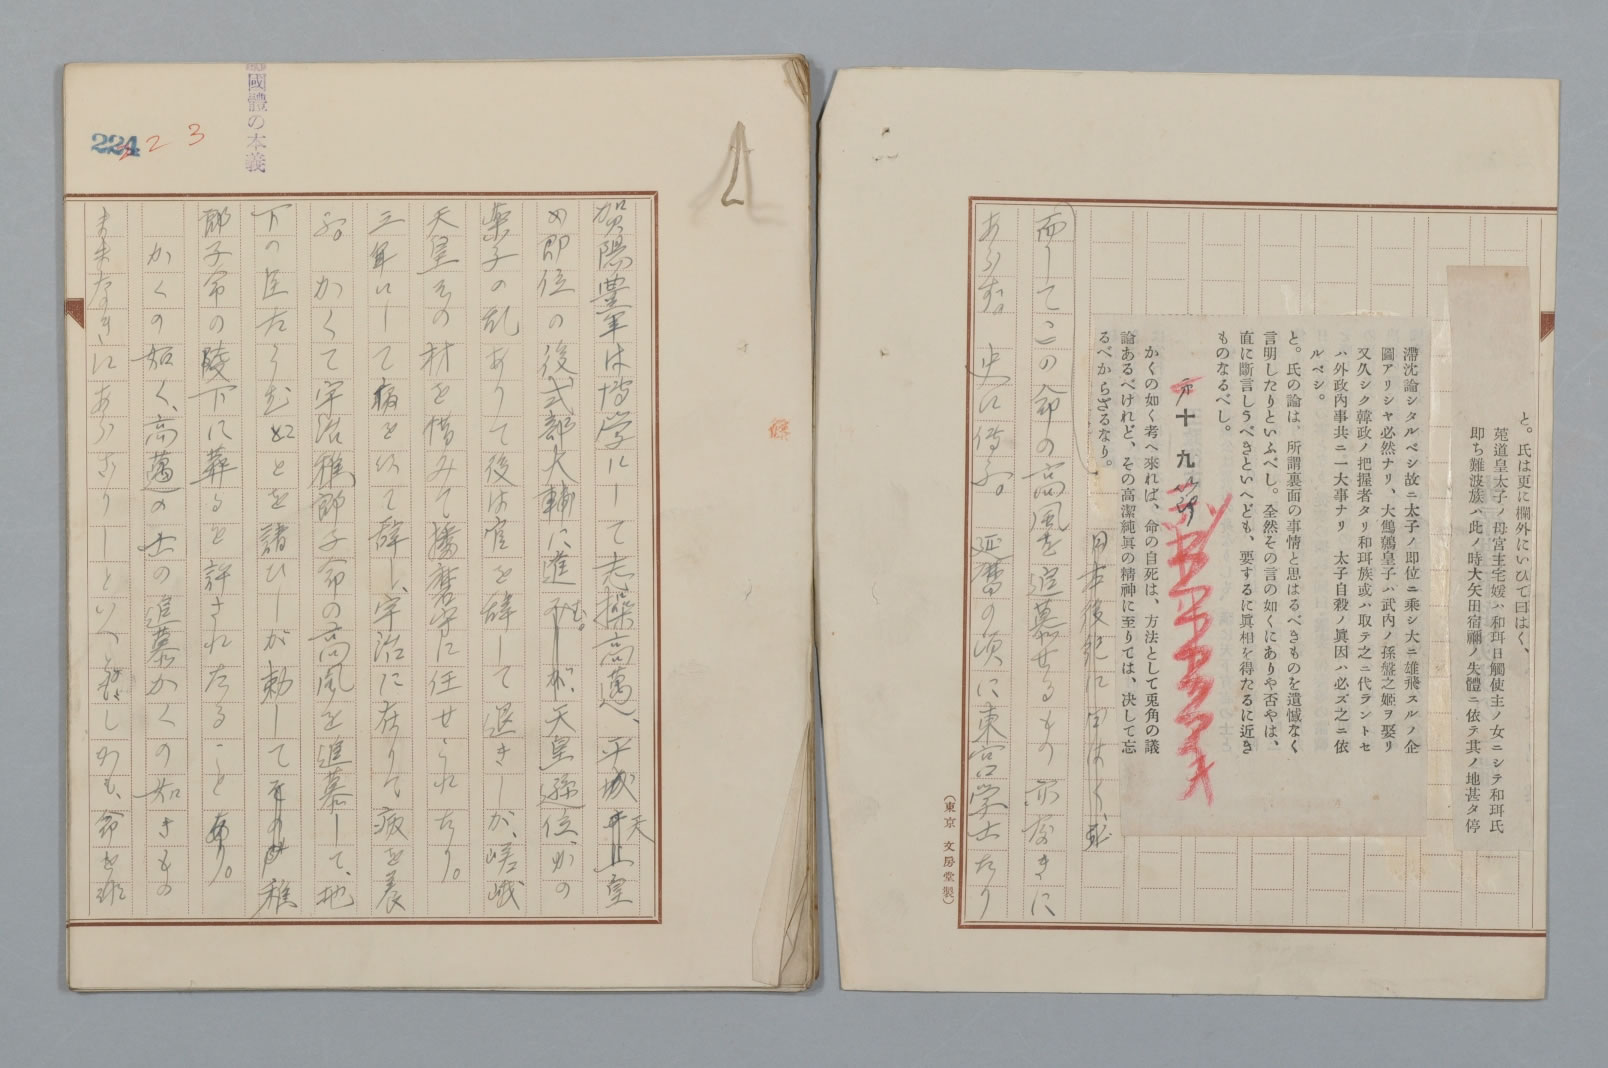 と。氏は更に欄外にいひて曰はく、
菟道皇太子ノ母宮主宅媛ハ和珥日觸使主ノ女ニシテ和珥氏
即ち難波族ハ此ノ時大矢田宿禰ノ失體ニ依テ其ノ地甚タ停
滯沈論シタルベシ故ニ太子ノ即位ニ乘シ大ニ雄飛スルノ企
圖アリシヤ必然ナリ、大鷦鷯皇子ハ武内ノ孫盤之姬ヲ娶リ
又久シク韓政ノ把握者タリ和珥族或ハ取テ之ニ代ラントセ
ハ外政内事共ニ一大事ナリ 太子自殺ノ眞因ハ必ズ之ニ依
ルベシ。
と。氏の論は、所謂裏面の事情と思はるべきものを遺憾なく
言明したりといふべし。全然その言の如くにありや否やは、
直に斷言しうべきといへども、要するに眞相を得たるに近き
ものなるべし。
十九
かくの如く考へ來れば、命の自死は、方法として兎角の議
論あるべけれど、その高潔純眞の精神に至りては、決して忘
るべからざるなり。
日本後紀に曰はく、
而してこの命の高風を追慕せるもの亦なきに
あらず。史に傳ふ。延暦の頃に東宮学士たり
(東京 文房堂製)
國體の本義
224
223
賀陽豊年は博学にして志操高邁、平城天皇
の即位の後式部大輔に進む。が、天皇遜位、かの
薬子の乱ありて後は官を辞して退きしが、嵯峨
天皇その材を惜みて播磨守に任せられたり。
三年にして病を以て辞し、宇治に在りて病を養
ふ。かくて宇治稚郎子命の高風を追慕して、地
下の臣たらむことを請ひしが勅してその稚
郎子命の陵下に葬るを許されたることあり。
かくの如く、高邁の士の追慕かくの如きもの
まゝなきにあらざりしといへども、命を